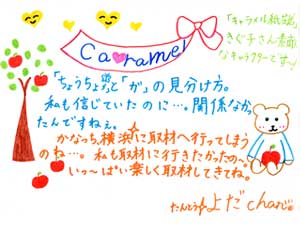 Caramel
「キャラメル紙芸」
きぐ子さん素顔
なキャラクターです〜♪
「ちょうちょ」と「が」の見分け方。
私も信じていたのに…。関係なかっ
たんですねぇ。
かなっち、横浜に取材へ行ってしまう
のね…。私も取材に行きたかったの〜。
いっ〜ぱい楽しく取材してきてね。
たんとうよだchan